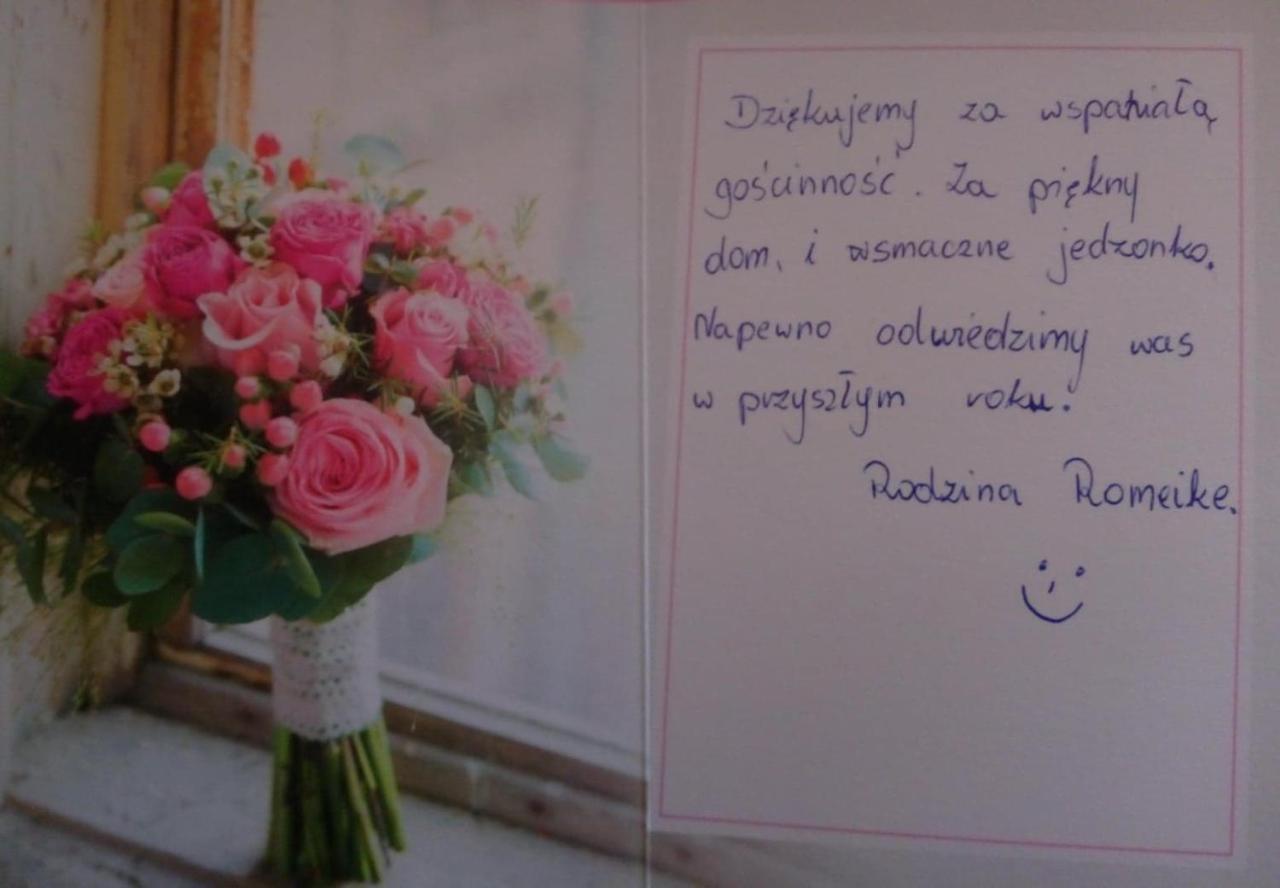 Dziękujemy za wspaniałą
gościnność. Za piękny
dom, i wsmaczne jedzonko.
Napewno odwiedzimy was
w przyszłym roku.
Rodzina Romeike.